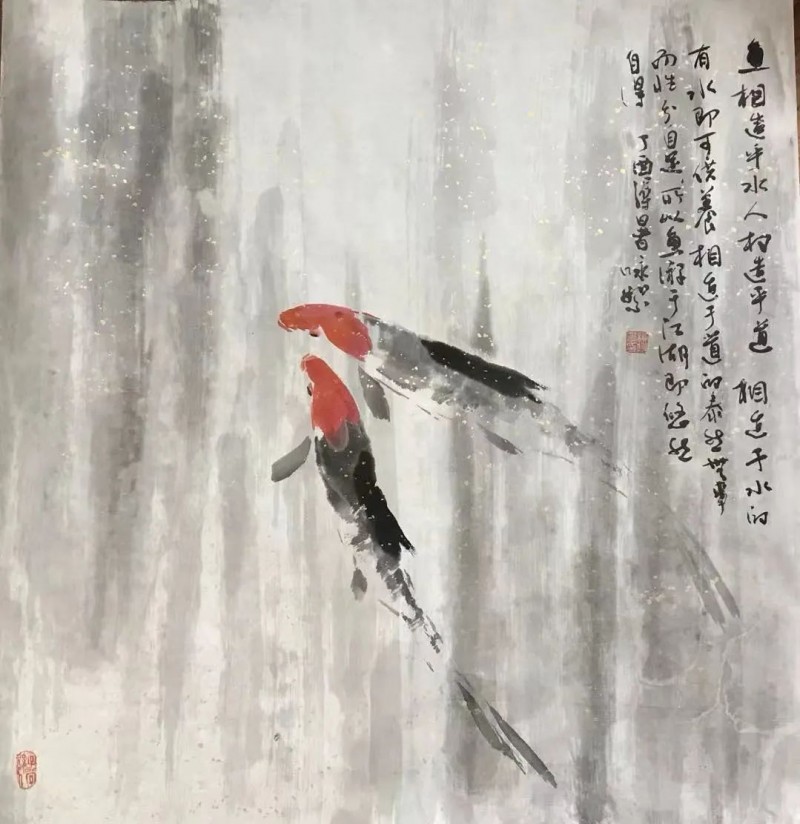 鱼相造乎水人相造乎道 相造于水的
有水即可供养相造于道的泰然無事
而性分自足所以鱼游于江湖即悠然
自得 丁酉深日書咏絮